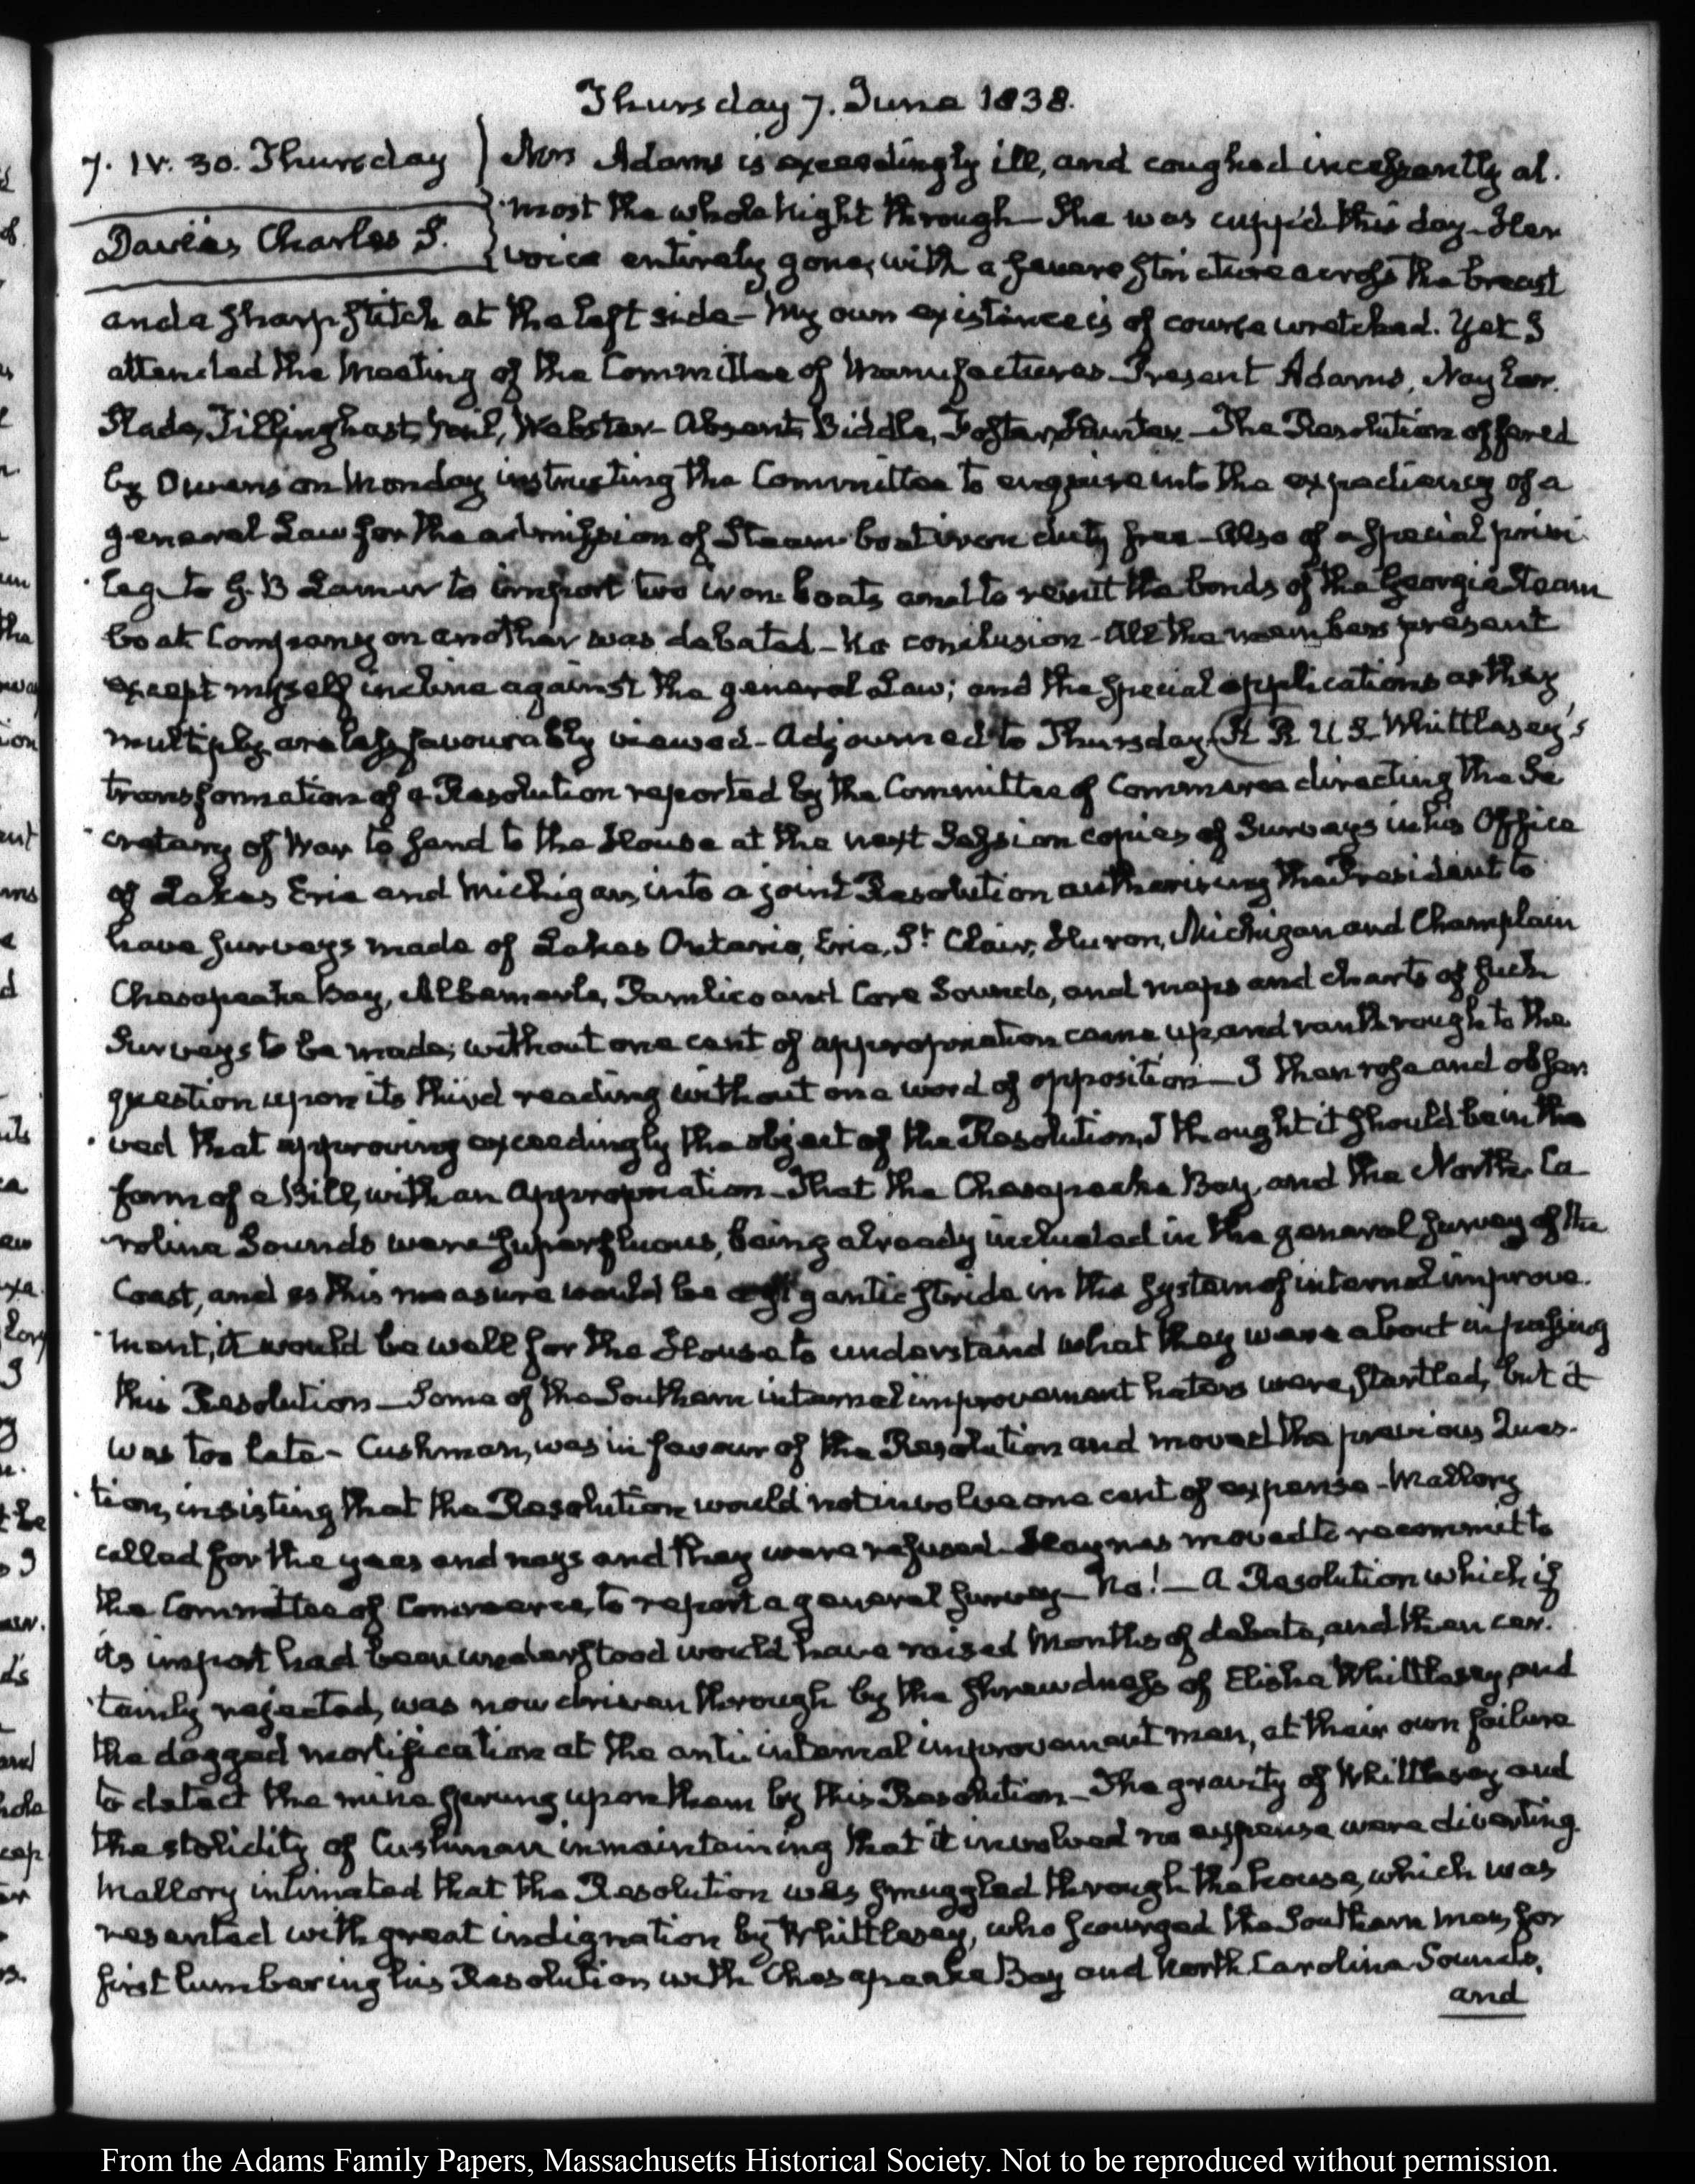 Thursday 7. June 1838.
7. IV. 30. Thursday
Davies Charles S.
Mrs Adams is exceedingly ill, and coughed incessantly al-
most the whole Night through— She was cupp'd this day— Her
voice entirely gone, with a severe stricture across the breast
and a sharp stitch at the left side— My own existence is of course wretched. Yet I
attended the Meeting of the Committee of Manufactures— Present Adams, Naylor.
Slade, Tillinghast, Vail, Webster— Absent, Biddle, Foster, Hunter— The Resolution offered
by Owens on Monday instructing the Committee to enquire into the expediency of a
general Law for the admission of Steam-boat iron duty free— Also of a special privi-
lege to G. B Lamar to import two iron boats and to remit the bonds of the Georgia Steam
boat Company on another was debated— No conclusion— All the members present
except myself incline against the general Law; and the special applications as they
multiply are less favourably viewed— Adjourned to Thursday. H R U S— Whittlesey's
transformation of a Resolution reported by the Committee of Commerce directing the Se-
cretary of War to send to the House at the next Session copies of Surveys in his Office
of Lakes Erie and Michigan, into a joint Resolution authorising the President to
have surveys made of Lakes Ontario, Erie, St. Clair, Huron, Michigan and Champlain
Chesapeake Bay, Albemarle, Pamlico and Core Sounds, and maps and charts of such
Surveys to be made; without one cent of appropriation came up, and ran through to the
question upon its third reading without one word of opposition— I then rose and obser-
ved that approving exceedingly the object of the Resolution, I thought it should be in the
form of a Bill, with an Appropriation— That the Chesapeake Bay, and the North-Ca-
rolina Sounds were superfluous, being already included in the general survey of the
Coast, and as this measure would be gigantic stride in the system of internal improve-
ment, it would be well for the House to understand what they were about in passing
this Resolution— Some of the Southern internal improvement haters were startled, but it
was too late— Cushman, was in favour of the Resolution and moved the previous Ques-
tion, insisting that the Resolution would not involve one cent of expense— Mallory
called for the yeas and nays and they were refused— Haynes moved to recommit to
the Committee of Commerce, to report a general survey— No!— A Resolution which if
its import had been understood would have raised Months of debate, and then cer-
tainly rejected, was now driven through by the shrewdness of Elisha Whittlesey, and
the dogged mortification at the anti internal improvement men, at their own failure
to detect the mine sprung upon them by this Resolution— The gravity of Whittlesey and
the stolidity of Cushman in maintaining that it involved no expense were diverting.
Mallory intimated that the Resolution was smuggled through the house, which was
resented with great indignation by Whittlesey, who scourged the Southern men, for
first lumbering his Resolution with Chesapeake Bay and North Carolina Sounds,
and
From the Adams Family Papers, Massachusetts Historical Society. Not to be reproduced without permission.